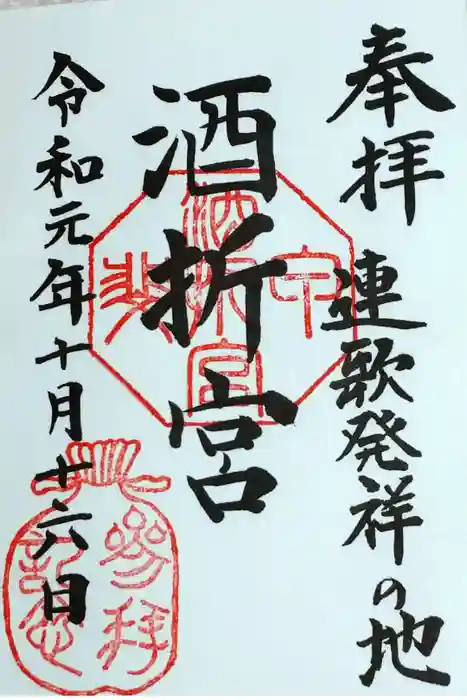 奉拝 連歌発祥の地
酒折宮
令和元年十月十六日
酒折宮
参拝